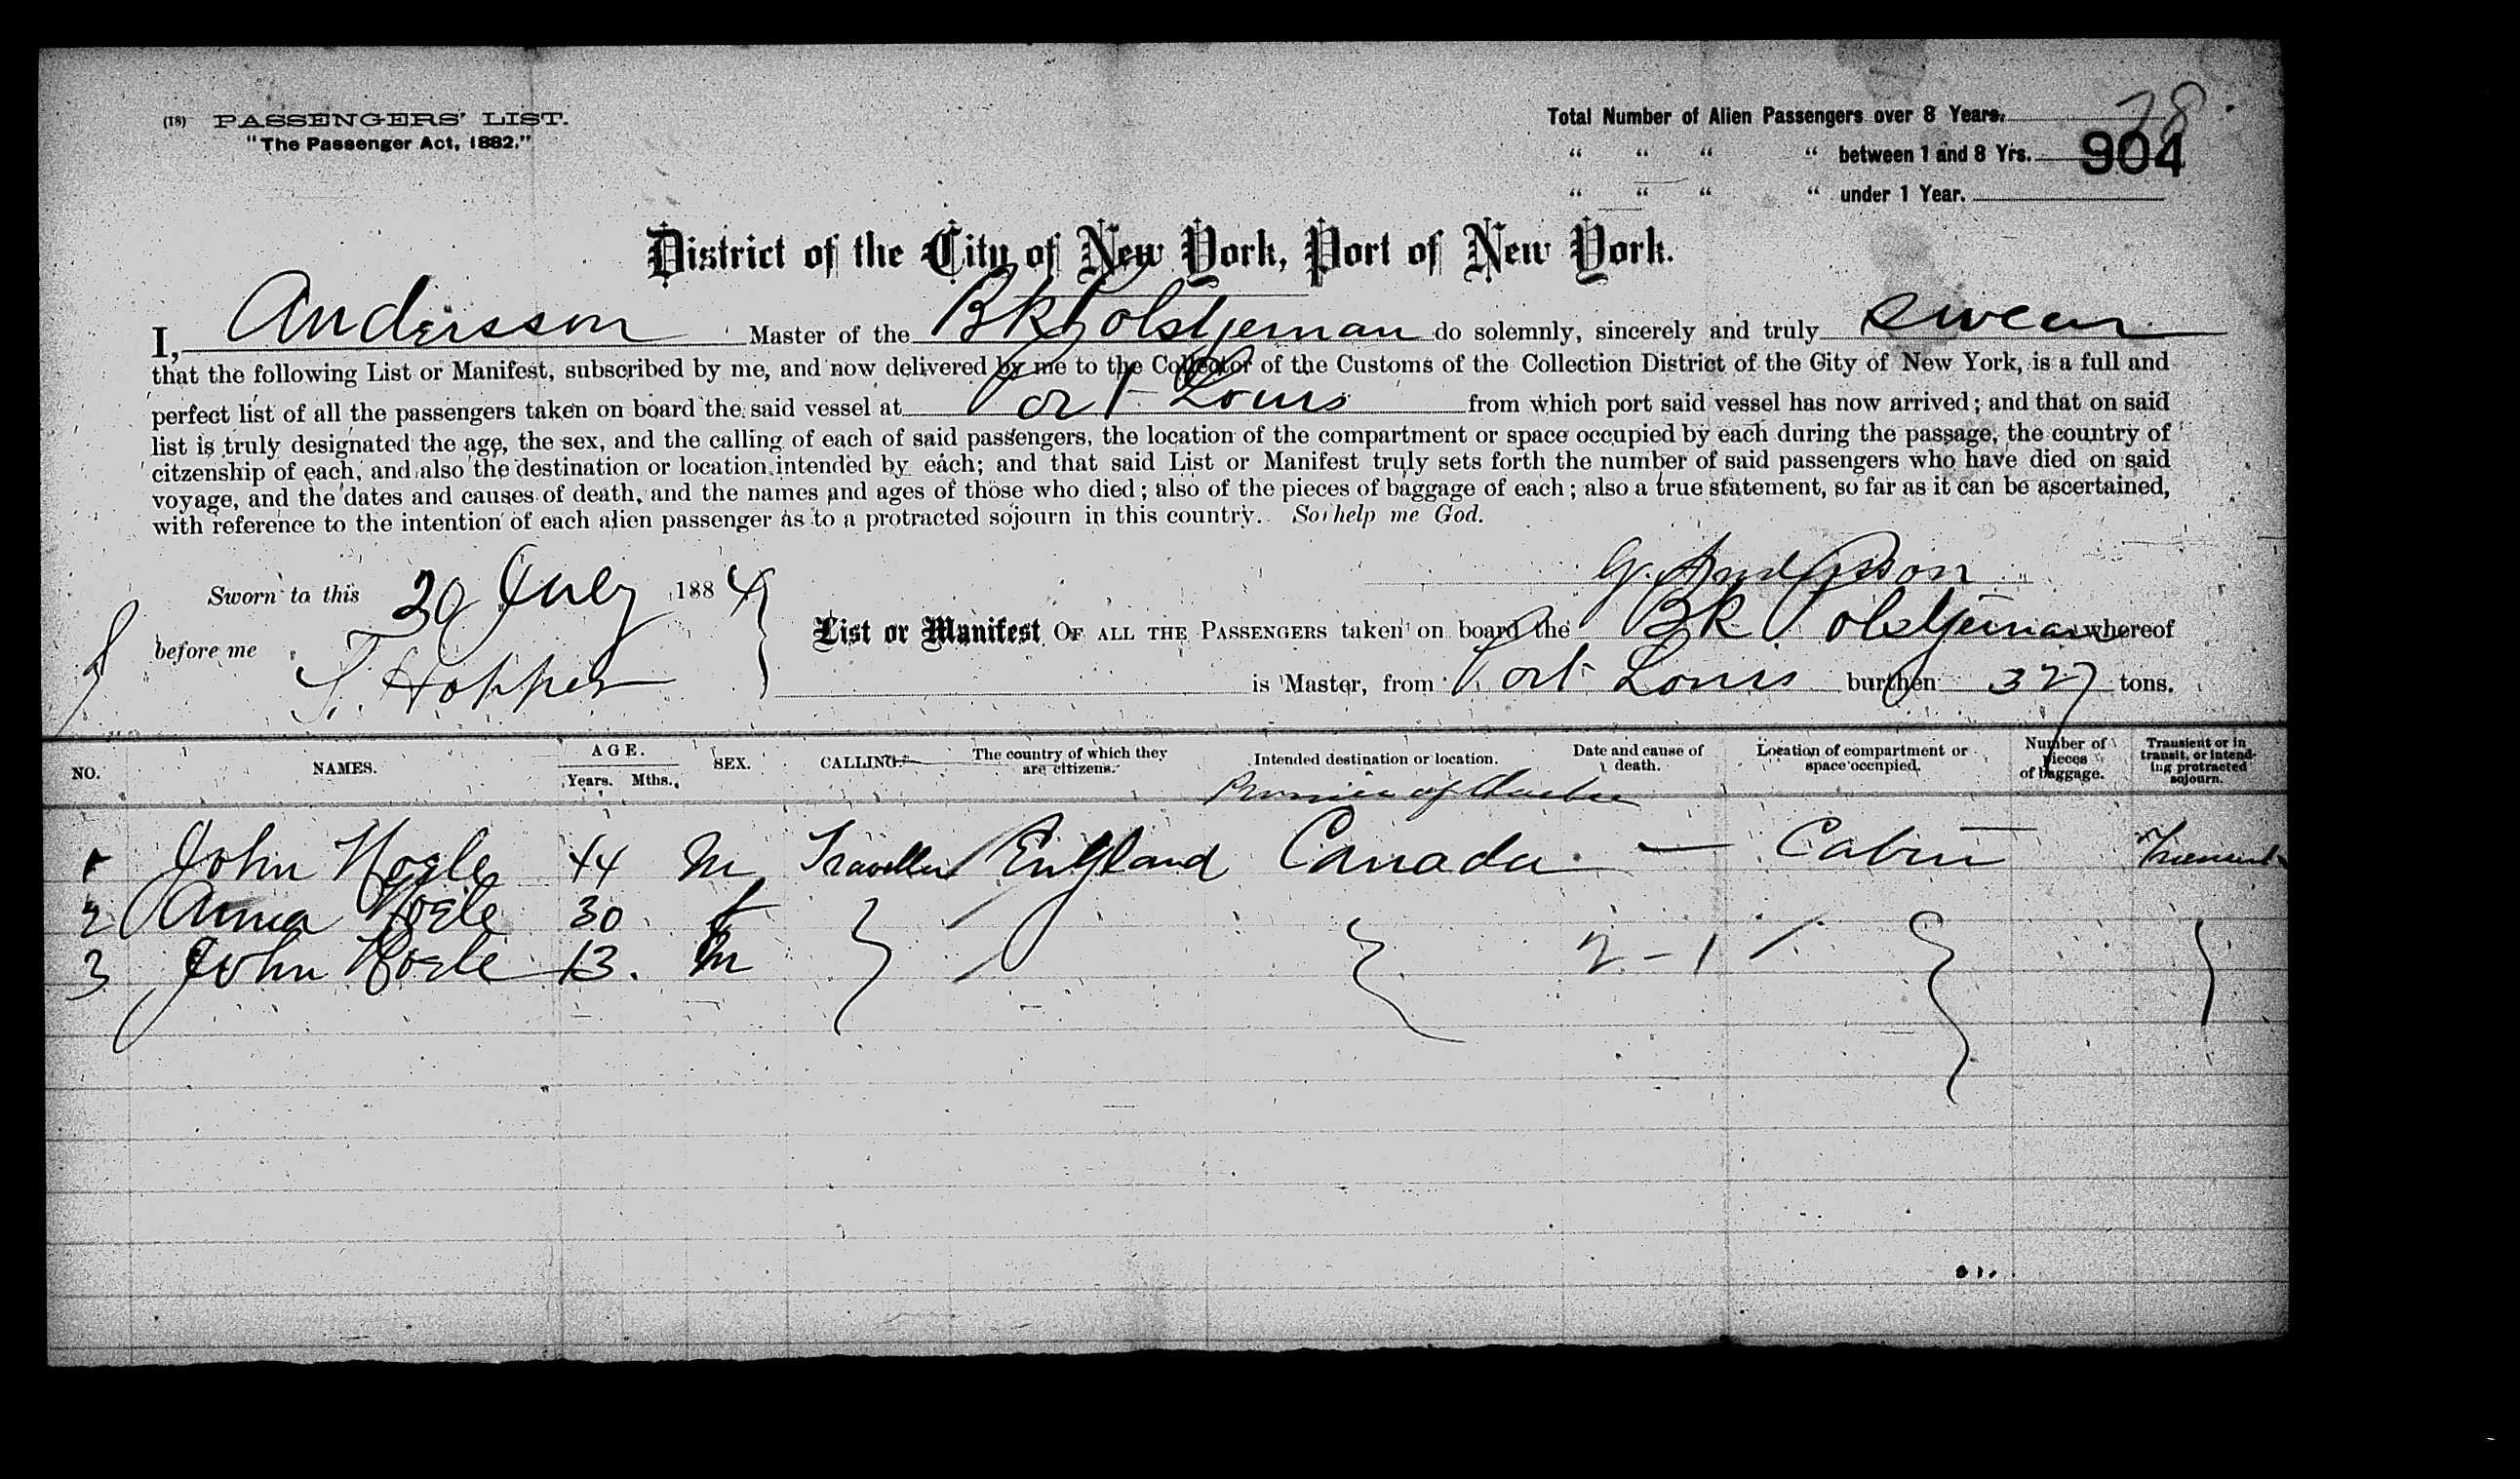 (18) PASSENGERS' LIST.
"The Passenger Act, 1882."
Total Number of Alien Passengers over 8 Years. 78
" " " " between 1 and 8 Yrs. 904
" " " " under 1 Year.
District of the City of New York, Port of New York.
I, Andersson Master of the Bk Polstjernan do solemnly, sincerely and truly swear
that the following List or Manifest, subscribed by me, and now delivered by me to the Collector of the Customs of the Collection District of the City of New York, is a full and
perfect list of all the passengers taken on board the said vessel at Port Louis from which port said vessel has now arrived; and that on said
list is truly designated the age, the sex, and the calling of each of said passengers, the location of the compartment or space occupied by each during the passage, the country of
citzenship of each, and also the destination or location intended by each; and that said List or Manifest truly sets forth the number of said passengers who have died on said
voyage, and the dates and causes of death, and the names and ages of those who died; also of the pieces of baggage of each; also a true statement, so far as it can be ascertained,
with reference to the intention of each alien passenger as to a protracted sojourn in this country. So help me God.
G. Andersson
Sworn to this 30 July 1884
before me T. Hopper
List or Manifest OF ALL THE PASSENGERS taken on board the Bk Polstjernan whereof
is Master, from Port Louis burthen 327 tons.
NO. NAMES. AGE. Years. Mths. SEX. CALLING. The country of which they are citizens. Intended destination or location. Date and cause of death. Location of compartment or space occupied. Number of pieces of baggage. Transient or in transit, or intending protracted sojourn.
Province of Quebec
1 John Hogle 44 M Traveller England Canada — Cabin Transient
2 Anna Hogle 30 f
3 John Hogle 13. M 2-1